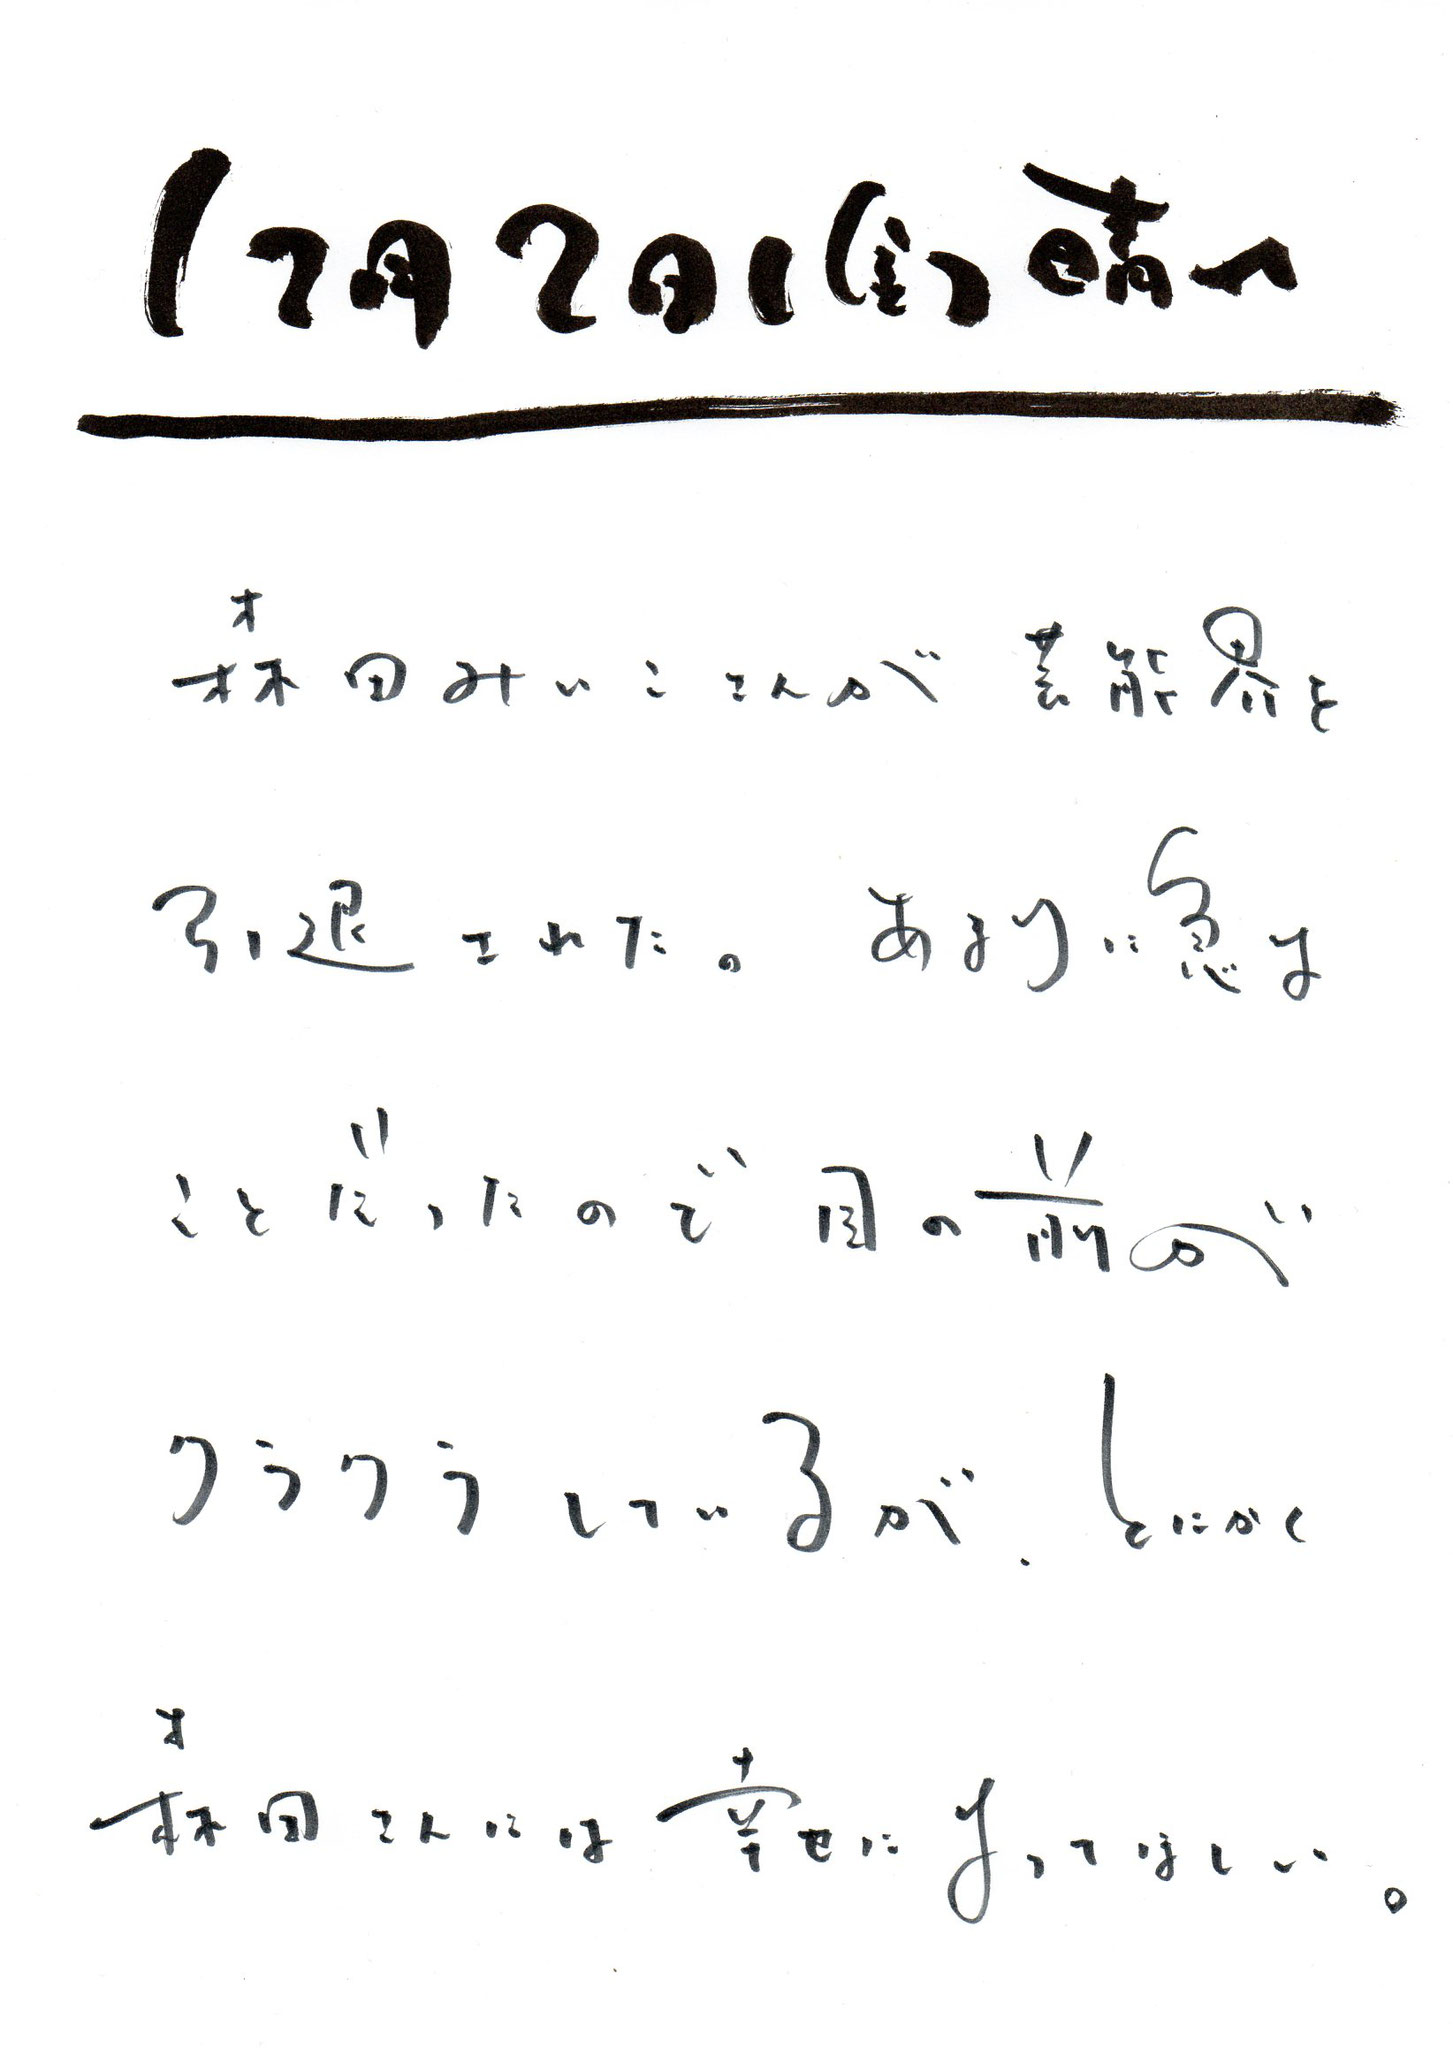 12月2日(金)晴れ
森田みいこさんが芸能界を
引退された。あまりに急な
ことだったので目の前が
クラクラしているが、とにかく
森田さんには幸せになってほしい。